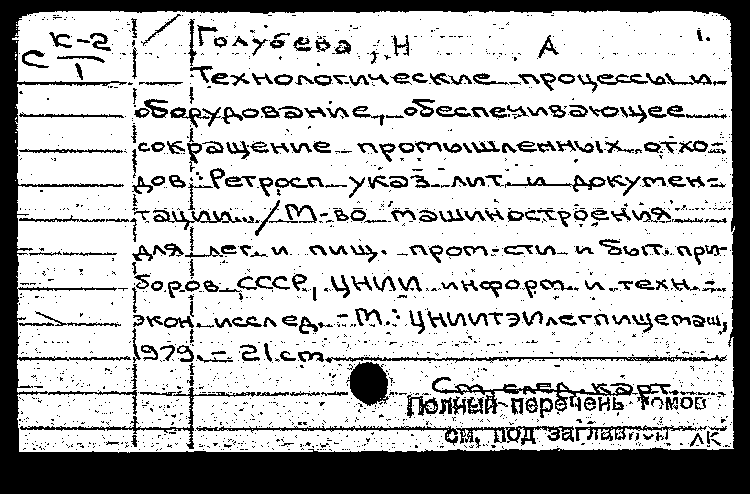 С К-2/1 Голубева, Н А 1.
Технологические процессы и
оборудование, обеспечивающее
сокращение промышленных отхо-
дов: Ретросп указ лит. и докумен-
тации../М-во машиностроения
для лег. и пищ. пром-сти и быт. при-
боров СССР, ЦНИИ информ. и техн.-
экон. исслед. - М.: ЦНИИТЭИлегпищемаш,
1979. - 21 см.
См след. карт.
Полный перечень томов
см. под заглавием ЛК